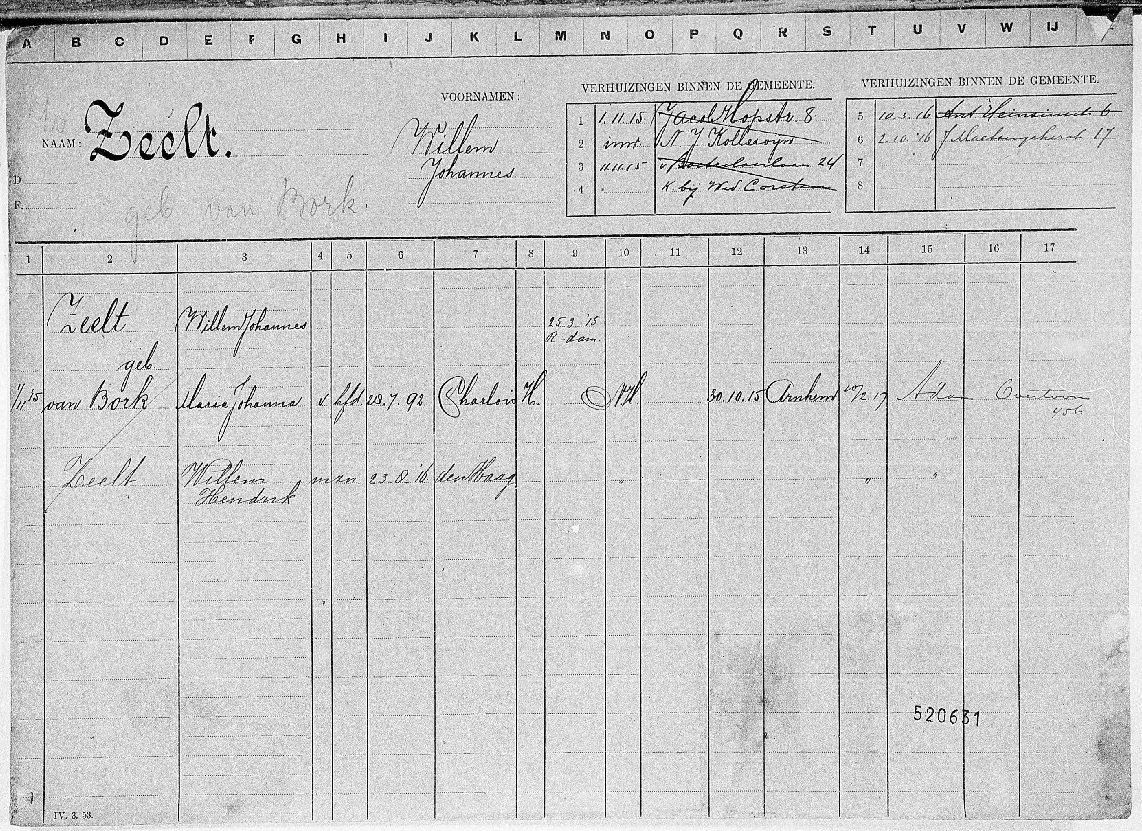 A B C D E F G H I J K L M N O P Q R S T U V W IJ
NAAM: Zeelt.
VOORNAMEN:
Willem
Johannes
D
F.
geb van Bork.
VERHUIZINGEN BINNEN DE GEMEENTE.
1 1.11.15 Jacob Hopstr. 8
2
3 11.11.15 24
4 " K by Wed
VERHUIZINGEN BINNEN DE GEMEENTE.
5 10.3.16 6
6 2.10.16 17
7
8
1 2 3 4 5 6 7 8 9 10 11 12 13 14 15 16 17
Zeelt Willem Johannes 25.3.15
R-dam.
geb
1/11 15 van Bork Maria Johanna v hfd 28.7.92 Charlois H. NH 30.10.15 Arnhem 20/2 17 Adam Overtoom
456
Zeelt Willem m zn 23.8.16 den Haag " " "
Hendrik
520631
IV. 3. 53.